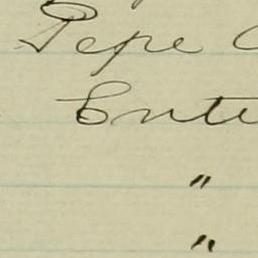 Pepe C
Ente
"
"